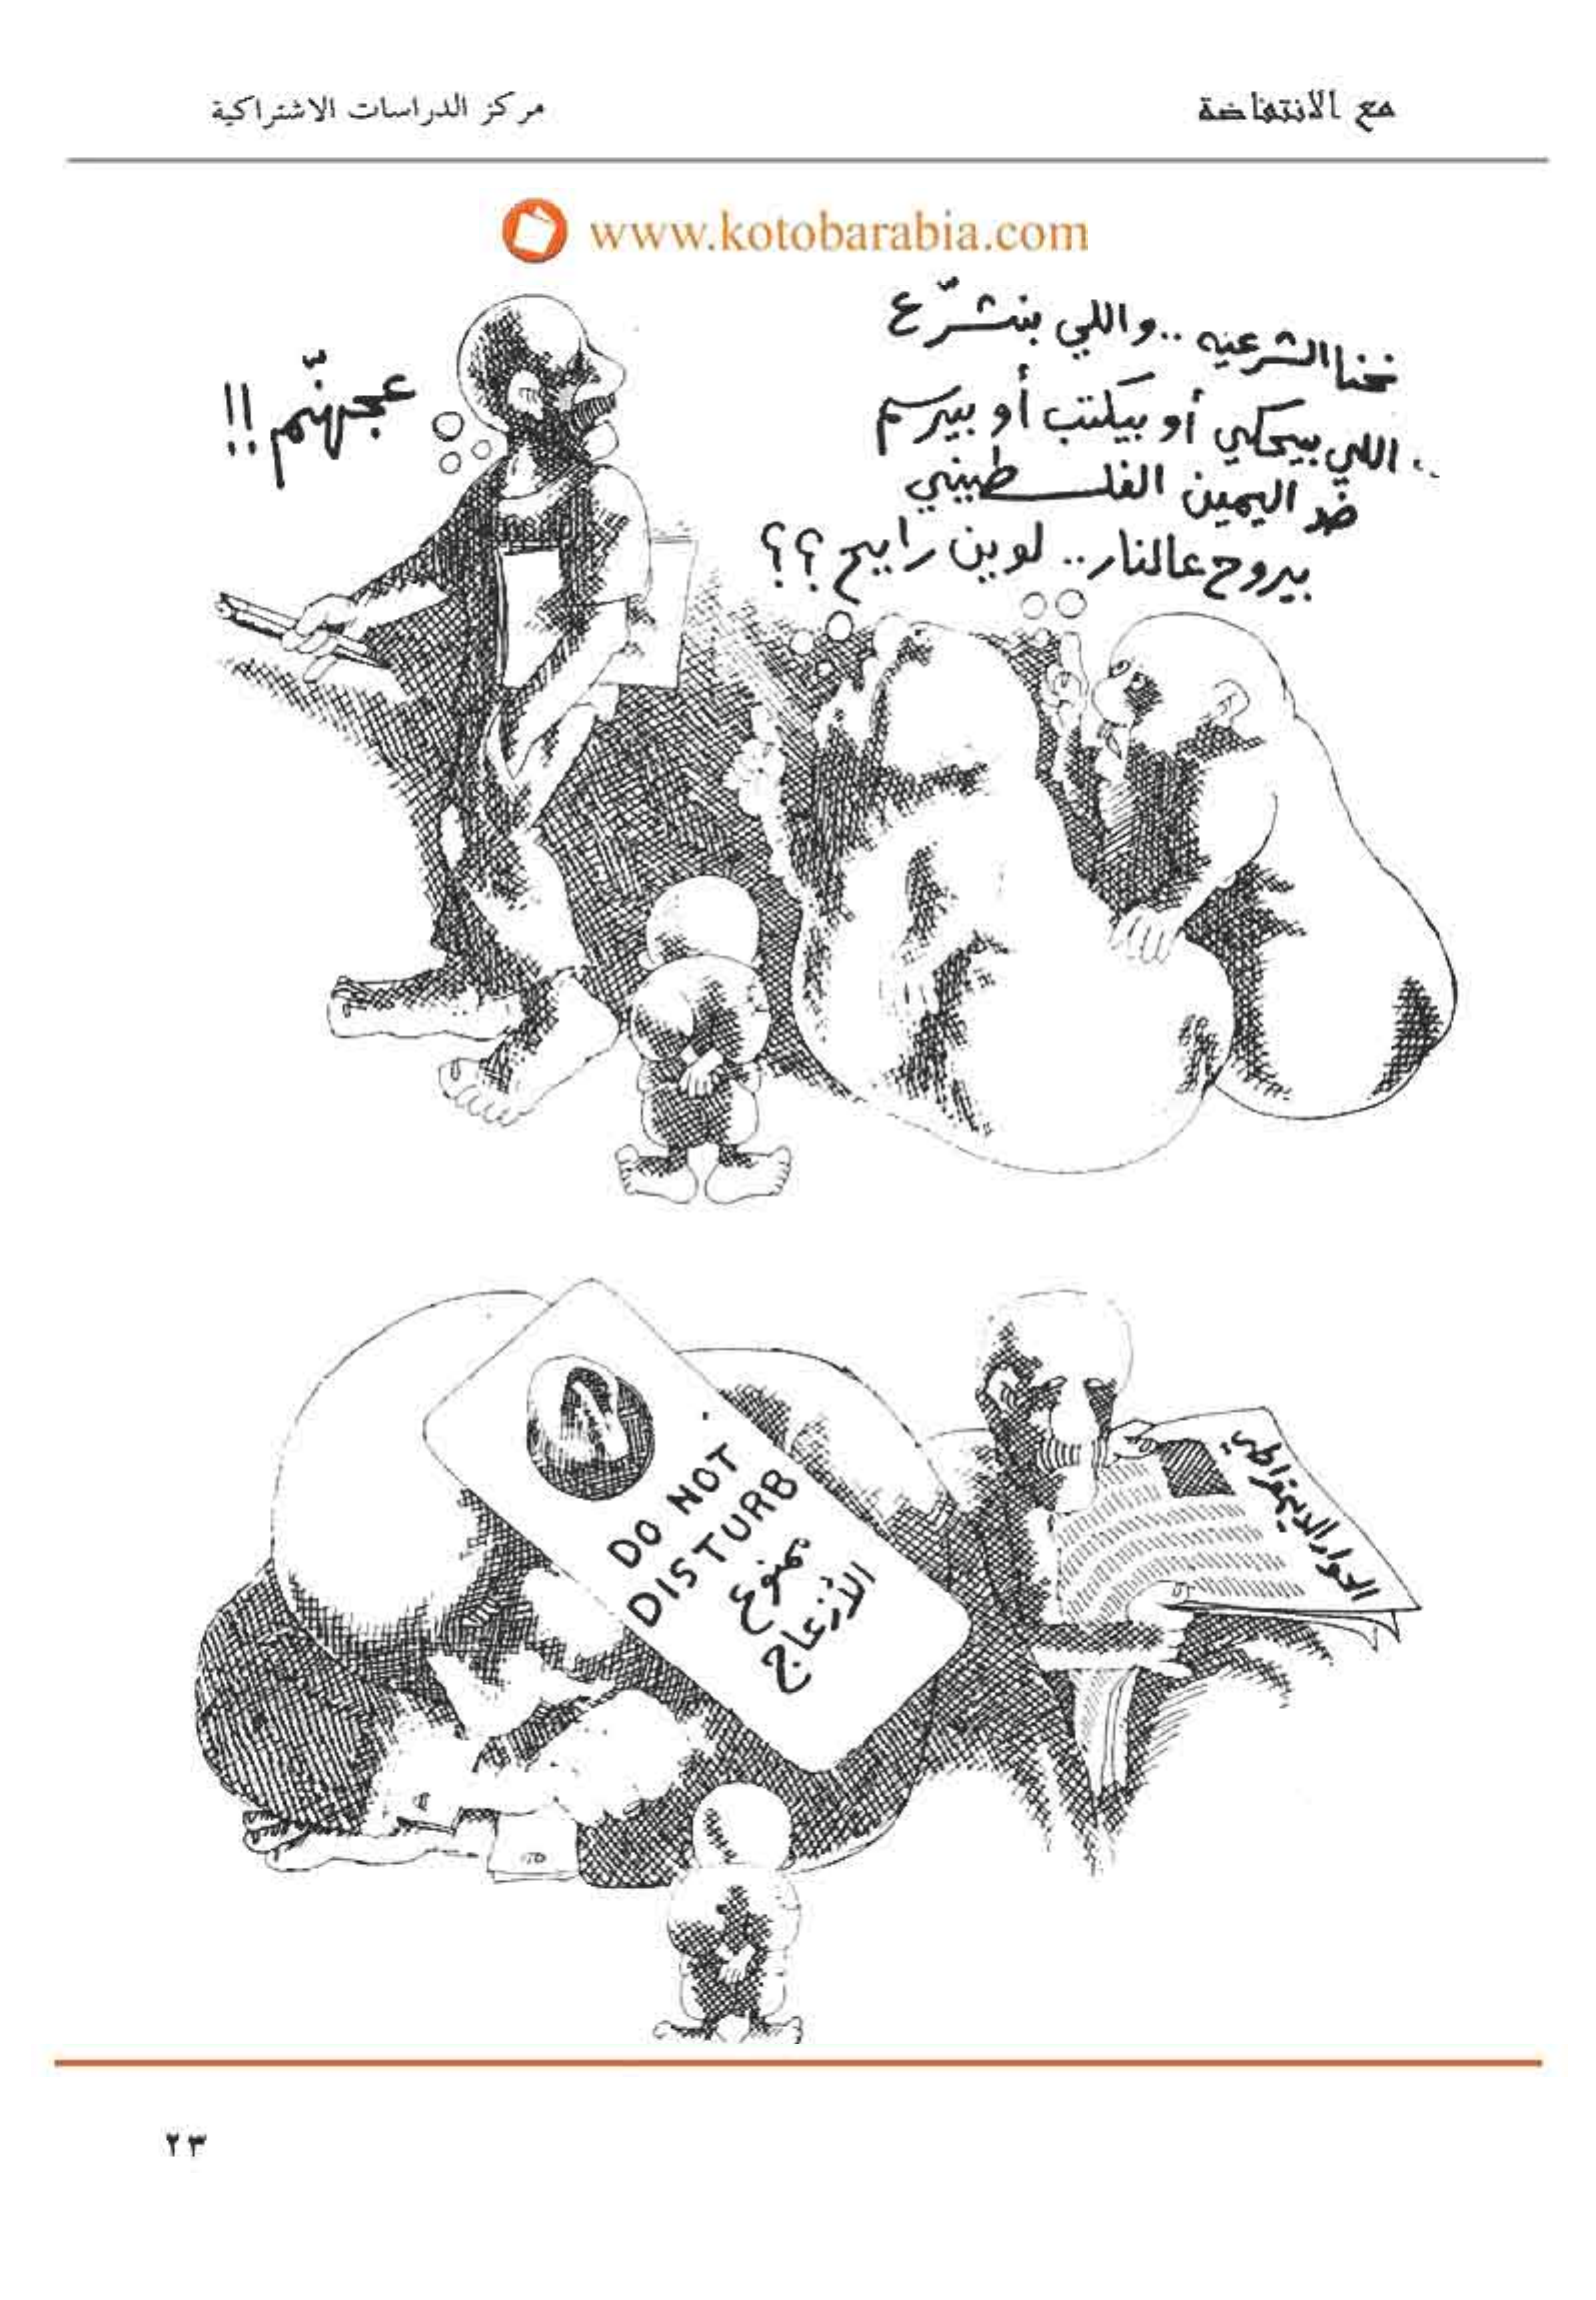 مع الانتفاضة
مركز الدراسات الاشتراكية
www.kotobarabia.com
نحنا الشرعيه .. واللي بنشرّع
.. اللي بيحكي أو بيكتب أو بيرسم
ضد اليمين الفلسطيني
بيروح عالنار .. لوين رايح ؟؟
عجهنّم !!
DO NOT
DISTURB
ممنوع
الأزعاج
الحوار الديمقراطي
٢٣